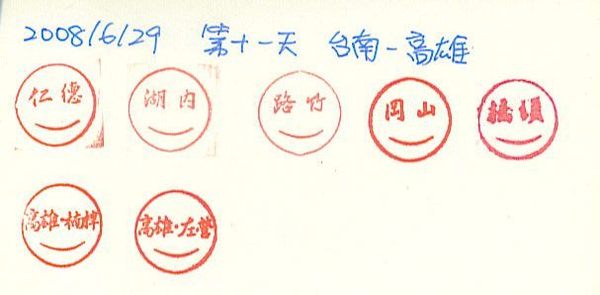 2008/6/29 第十一天 台南-高雄
仁德 湖內 路竹 岡山 橋頭
高雄·楠梓 高雄·左營